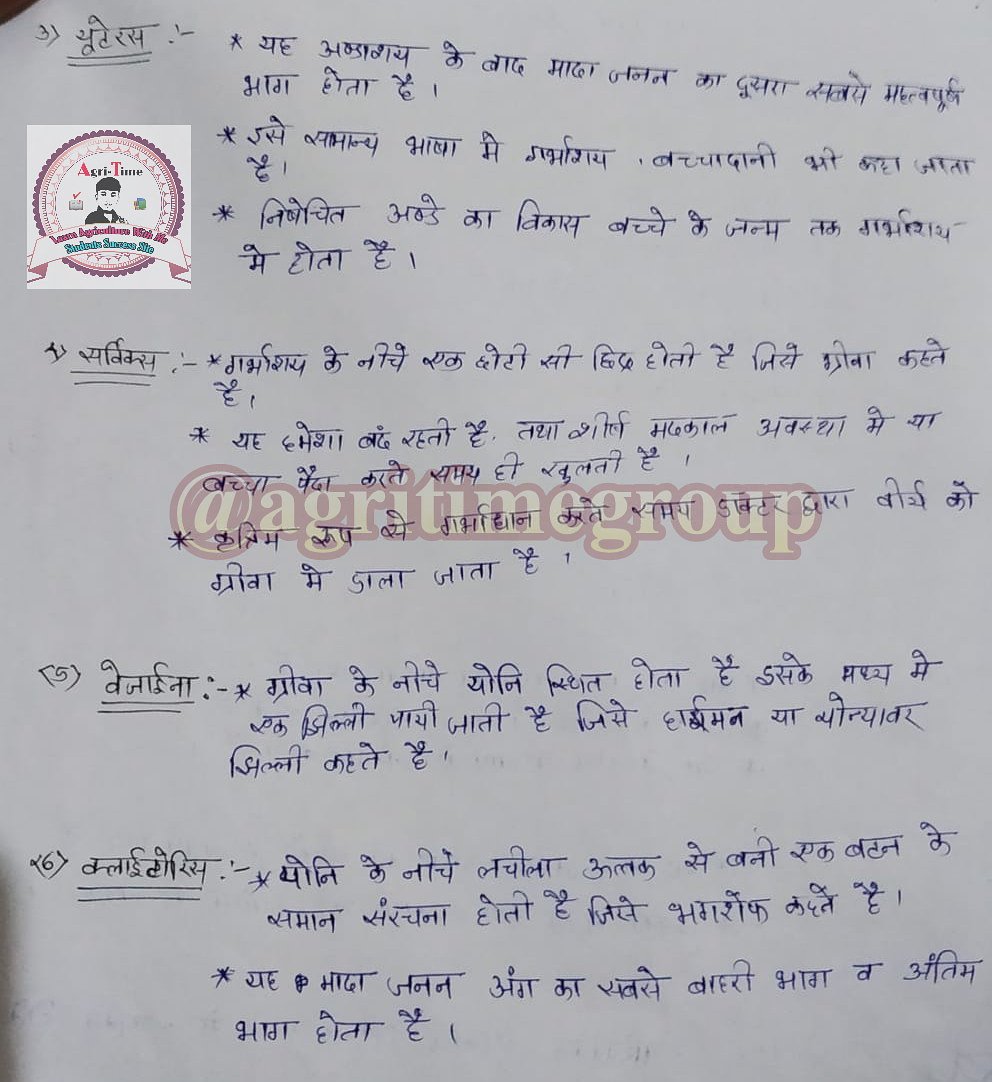 3) यूटेरस :- * यह अण्डाशय के बाद मादा जनन का दूसरा सबसे महत्वपूर्ण
भाग होता है।
* इसे सामान्य भाषा मे गर्भाशय , बच्चादानी भी कहा जाता
है।
* निषेचित अण्डे का विकास बच्चे के जन्म तक गर्भाशय
मे होता है।
Agri-Time
Learn Agriculture With Me
Students Success Site
4) सर्विक्स :- * गर्भाशय के नीचे एक छोटी सी छिद्र होती है जिसे ग्रीवा कहते
है।
* यह हमेशा बंद रहती है, तथा शीर्ष मदकाल अवस्था मे या
बच्चा पैदा करते समय ही खुलती है।
@agritimegroup
* कृत्रिम रूप से गर्भाधान करते समय डाक्टर द्वारा वीर्य को
ग्रीवा मे डाला जाता है।
(5) वेजाईना :- * ग्रीवा के नीचे योनि स्थित होता है इसके मध्य मे
एक झिल्ली पायी जाती है जिसे हाईमन या योन्यावर
झिल्ली कहते है।
(6) क्लाईटोरिस :- * योनि के नीचे लचीला ऊत्तक से बनी एक बटन के
समान संरचना होती है जिसे भगशेंफ कहतें है।
* यह मादा जनन अंग का सबसे बाहरी भाग व अंतिम
भाग होता है।